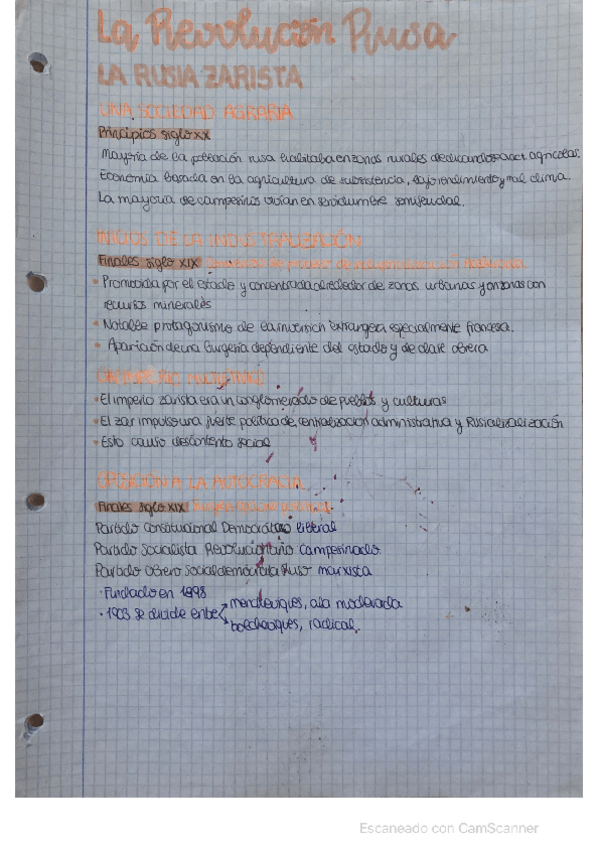 La Revolución Rusa
LA RUSIA ZARISTA
UNA SOCIEDAD AGRARIA
Principios siglo XX
Mayoría de la población rusa habitaba en zonas rurales dedicandose a act. agrícolas.
Economía basada en la agricultura de subsistencia, bajo rendimiento y mal clima.
La mayoría de campesinos vivían en servidumbre semifeudal.
INICIOS DE LA INDUSTRIALIZACIÓN
Finales siglo XIX
• Promovida por el estado y concentrada alrededor de zonas urbanas y en zonas con
recursos minerales
• Notable protagonismo de la inversión extranjera especialmente francesa.
• Aparición de una burgesía dependiente del estado y de clase obrera
UN IMPERIO MULTIÉTNICO
• El imperio zarista era un conglomerado de pueblos y culturas
• El zar impulso una fuerte política de centralización administrativa y
• Esto causo descontento social
OPOSICIÓN A LA AUTOCRACIA
Finales siglo XIX
Partido Constitucional Demócratico liberal
Partido Socialista Revolucionario campesinado
Partido Obrero Socialdemócrata Ruso marxista
• Fundado en 1898
• 1903 se divide entre
mencheviques, ala moderada
bolcheviques, radical.
Escaneado con CamScanner